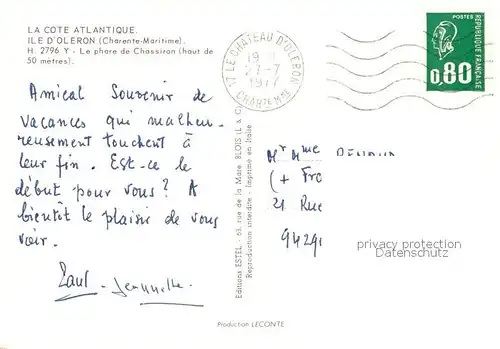 LA COTE ATLANTIQUE.
ILE D'OLERON (Charente-Maritime).
H. 2796 Y - Le phare de Chassiron (haut de
50 mètres).
Amical Souvenir de
vacances qui malheu-
reusement touchent à
leur fin. Est-ce le
début pour vous? A
bientôt le plaisir de vous
voir.
Paul - Jeannette.
17 LE CHATEAU D'OLERON
19 H
27-7
1977
CHARENTE MME
POSTES
REPUBLIQUE FRANÇAISE
0,80
Editions ESTEL - 63, rue de la Mare, BLOIS (L & C)
Reproduction interdite - Imprimé en Italie
Mr Mme
(+ Fre
21 Rue
9429
privacy protection
Datenschutz
Production LECONTE